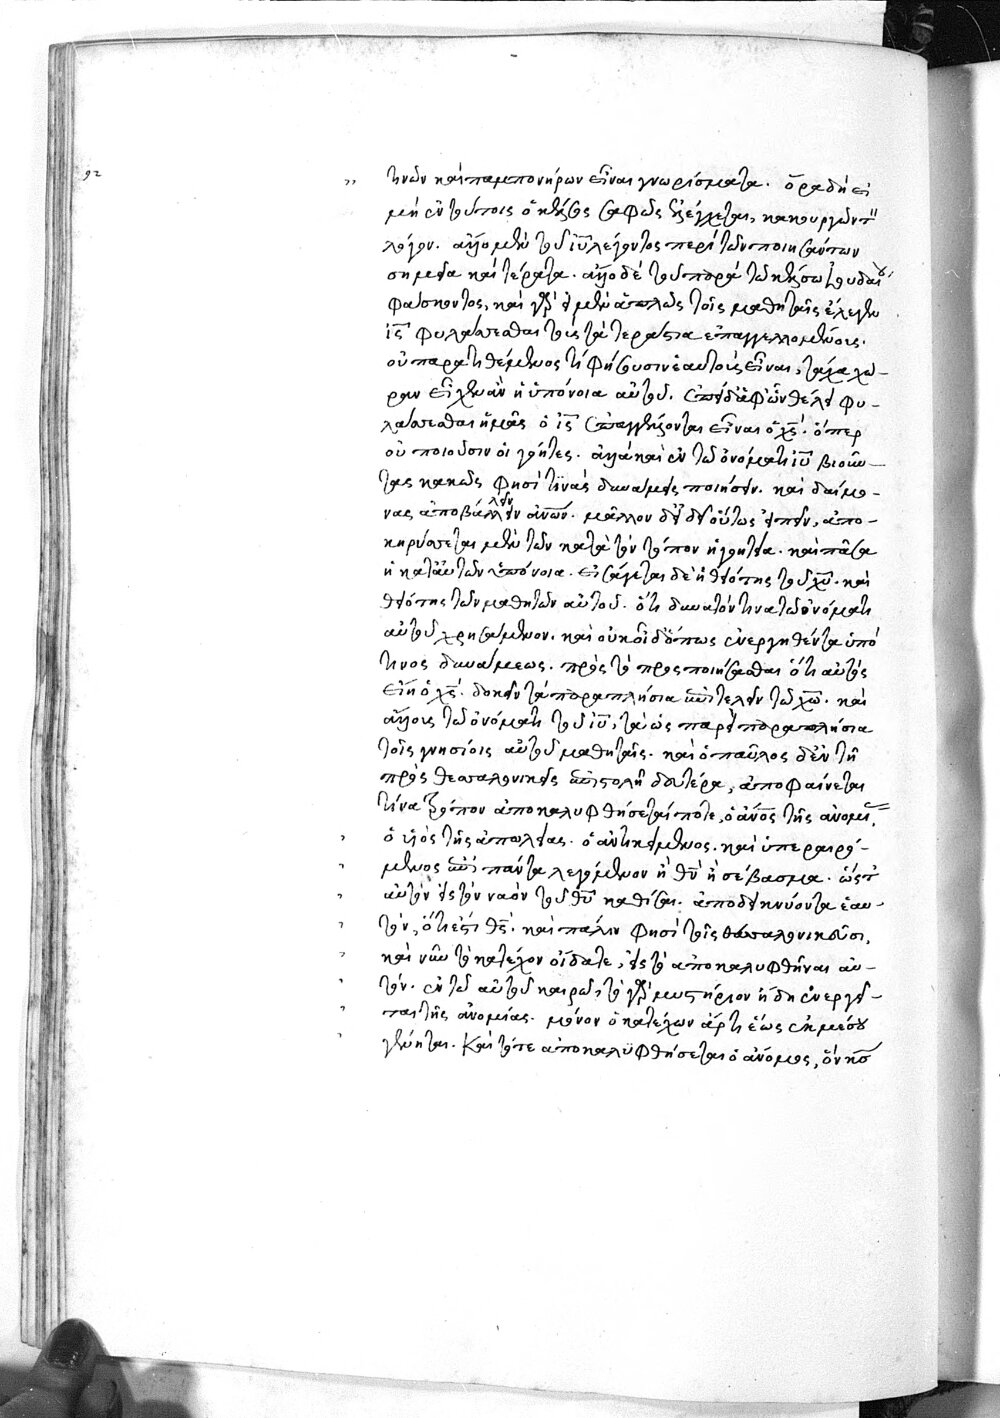 τινῶν καὶ παμπονήρων εἶναι γνωρίσματα. ὅρα δὴ εἰ
μὴ ἐν τούτοις ὁ κέλσος σαφῶς ἐλέγχεται, κακουργῶν τ
λόγον. ἄλλο μὲν τοῦ ιῦ λέγοντος περὶ τῶν ποιησάντων
σημεῖα καὶ τέρατα. ἄλλο δὲ τοῦ παρὰ τῷ κέλσῳ ἰουδαίου
φάσκοντος, καὶ γὰρ εἰ μὲν ἁπλῶς τοῖς μαθηταῖς ἔλεγεν
ις φυλάσσεσθαι τοὺς τὰ τεράστια ἐπαγγελλομένους.
οὐ παρατιθέμενος τί φήσουσιν ἑαυτοὺς εἶναι, τάχα χώ-
ραν εἶχεν ἂν ἡ ὑπόνοια αὐτοῦ. ἐπεὶ δὲ ἀφ' ὧν θέλει φυ-
λάσσεσθαι ἡμᾶς ὁ ις ἐπαγγέλλονται εἶναι ὁ χς. ὅπερ
οὐ ποιοῦσιν οἱ γόητες. ἀλλὰ καὶ ἐν τῷ ὀνόματι ιῦ βιοῦν-
τας κακῶς φησί τινὰς δυνάμεις ποιήσειν. καὶ δαίμο-
νας ἀποβάλλειν ἀνων. μᾶλλον δεῖ οὕτως εἰπεῖν, ἀπο-
κηρύσσεται μὲν τῶν κατὰ τὸν τόπον ἡ γοητεία. καὶ πᾶσα
ἡ κατ' αὐτῶν ὑπόνοια. εἰσάγεται δὲ ἡ θειότης τοῦ χῦ. καὶ
θειότης τῶν μαθητῶν αὐτοῦ. ὅτι δυνατόν τινα τῷ ὀνόματι
αὐτοῦ χρησάμενον. καὶ οὐκ οἶδ' ὅπως ἐνεργηθέντα ὑπό
τινος δυνάμεως. πρὸς τὸ προςποιήσασθαι ὅτι αὐτὸς
εἴη ὁ χς. δοκεῖν τὰ παραπλήσια ἐπιτελεῖν τῷ χῶ. καὶ
ἄλλους τῷ ὀνόματι τοῦ ιῦ, τὰ ὡς παραπλήσια
τοῖς γνησίοις αὐτοῦ μαθηταῖς. καὶ ὁ παῦλος δ' ἐν τῇ
πρὸς θεσσαλονικεῖς ἐπιστολῇ δευτέρᾳ, ἀποφαίνεται
τίνα τρόπον ἀποκαλυφθήσεταί ποτε, ὁ ἄνος τῆς ἀνομί
ὁ υἱὸς τῆς ἀπωλείας. ὁ ἀντικείμενος. καὶ ὑπεραιρό-
μενος ἐπὶ πάντα λεγόμενον ἢ θν ἢ σέβασμα. ὥςτ
αὐτὸν εἰς τὸν ναὸν τοῦ θῦ καθίσαι. ἀποδεικνύοντα ἑαυ-
τόν, ὅτι ἐστὶ θς. καὶ πάλιν φησὶ τοῖς θεσσαλονικεῦσι,
καὶ νῦν τὸ κατέχον οἴδατε, εἰς τὸ ἀποκαλυφθῆναι αὐ-
τόν. ἐν τῷ αὐτοῦ καιρῷ, τὸ γὰρ μυστήριον ἤδη ἐνεργεῖ-
ται τῆς ἀνομίας. μόνον ὁ κατέχων ἄρτι ἕως ἐκ μέσου
γένηται. Καὶ τότε ἀποκαλυφθήσεται ὁ ἄνομος, ὃν ὁ κς